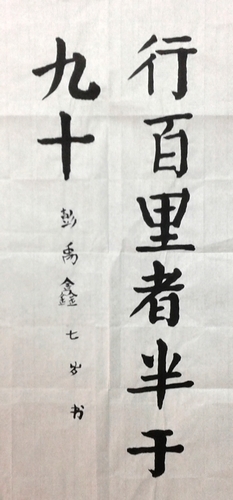 行百里者半于
九十
彭禹鑫七岁书